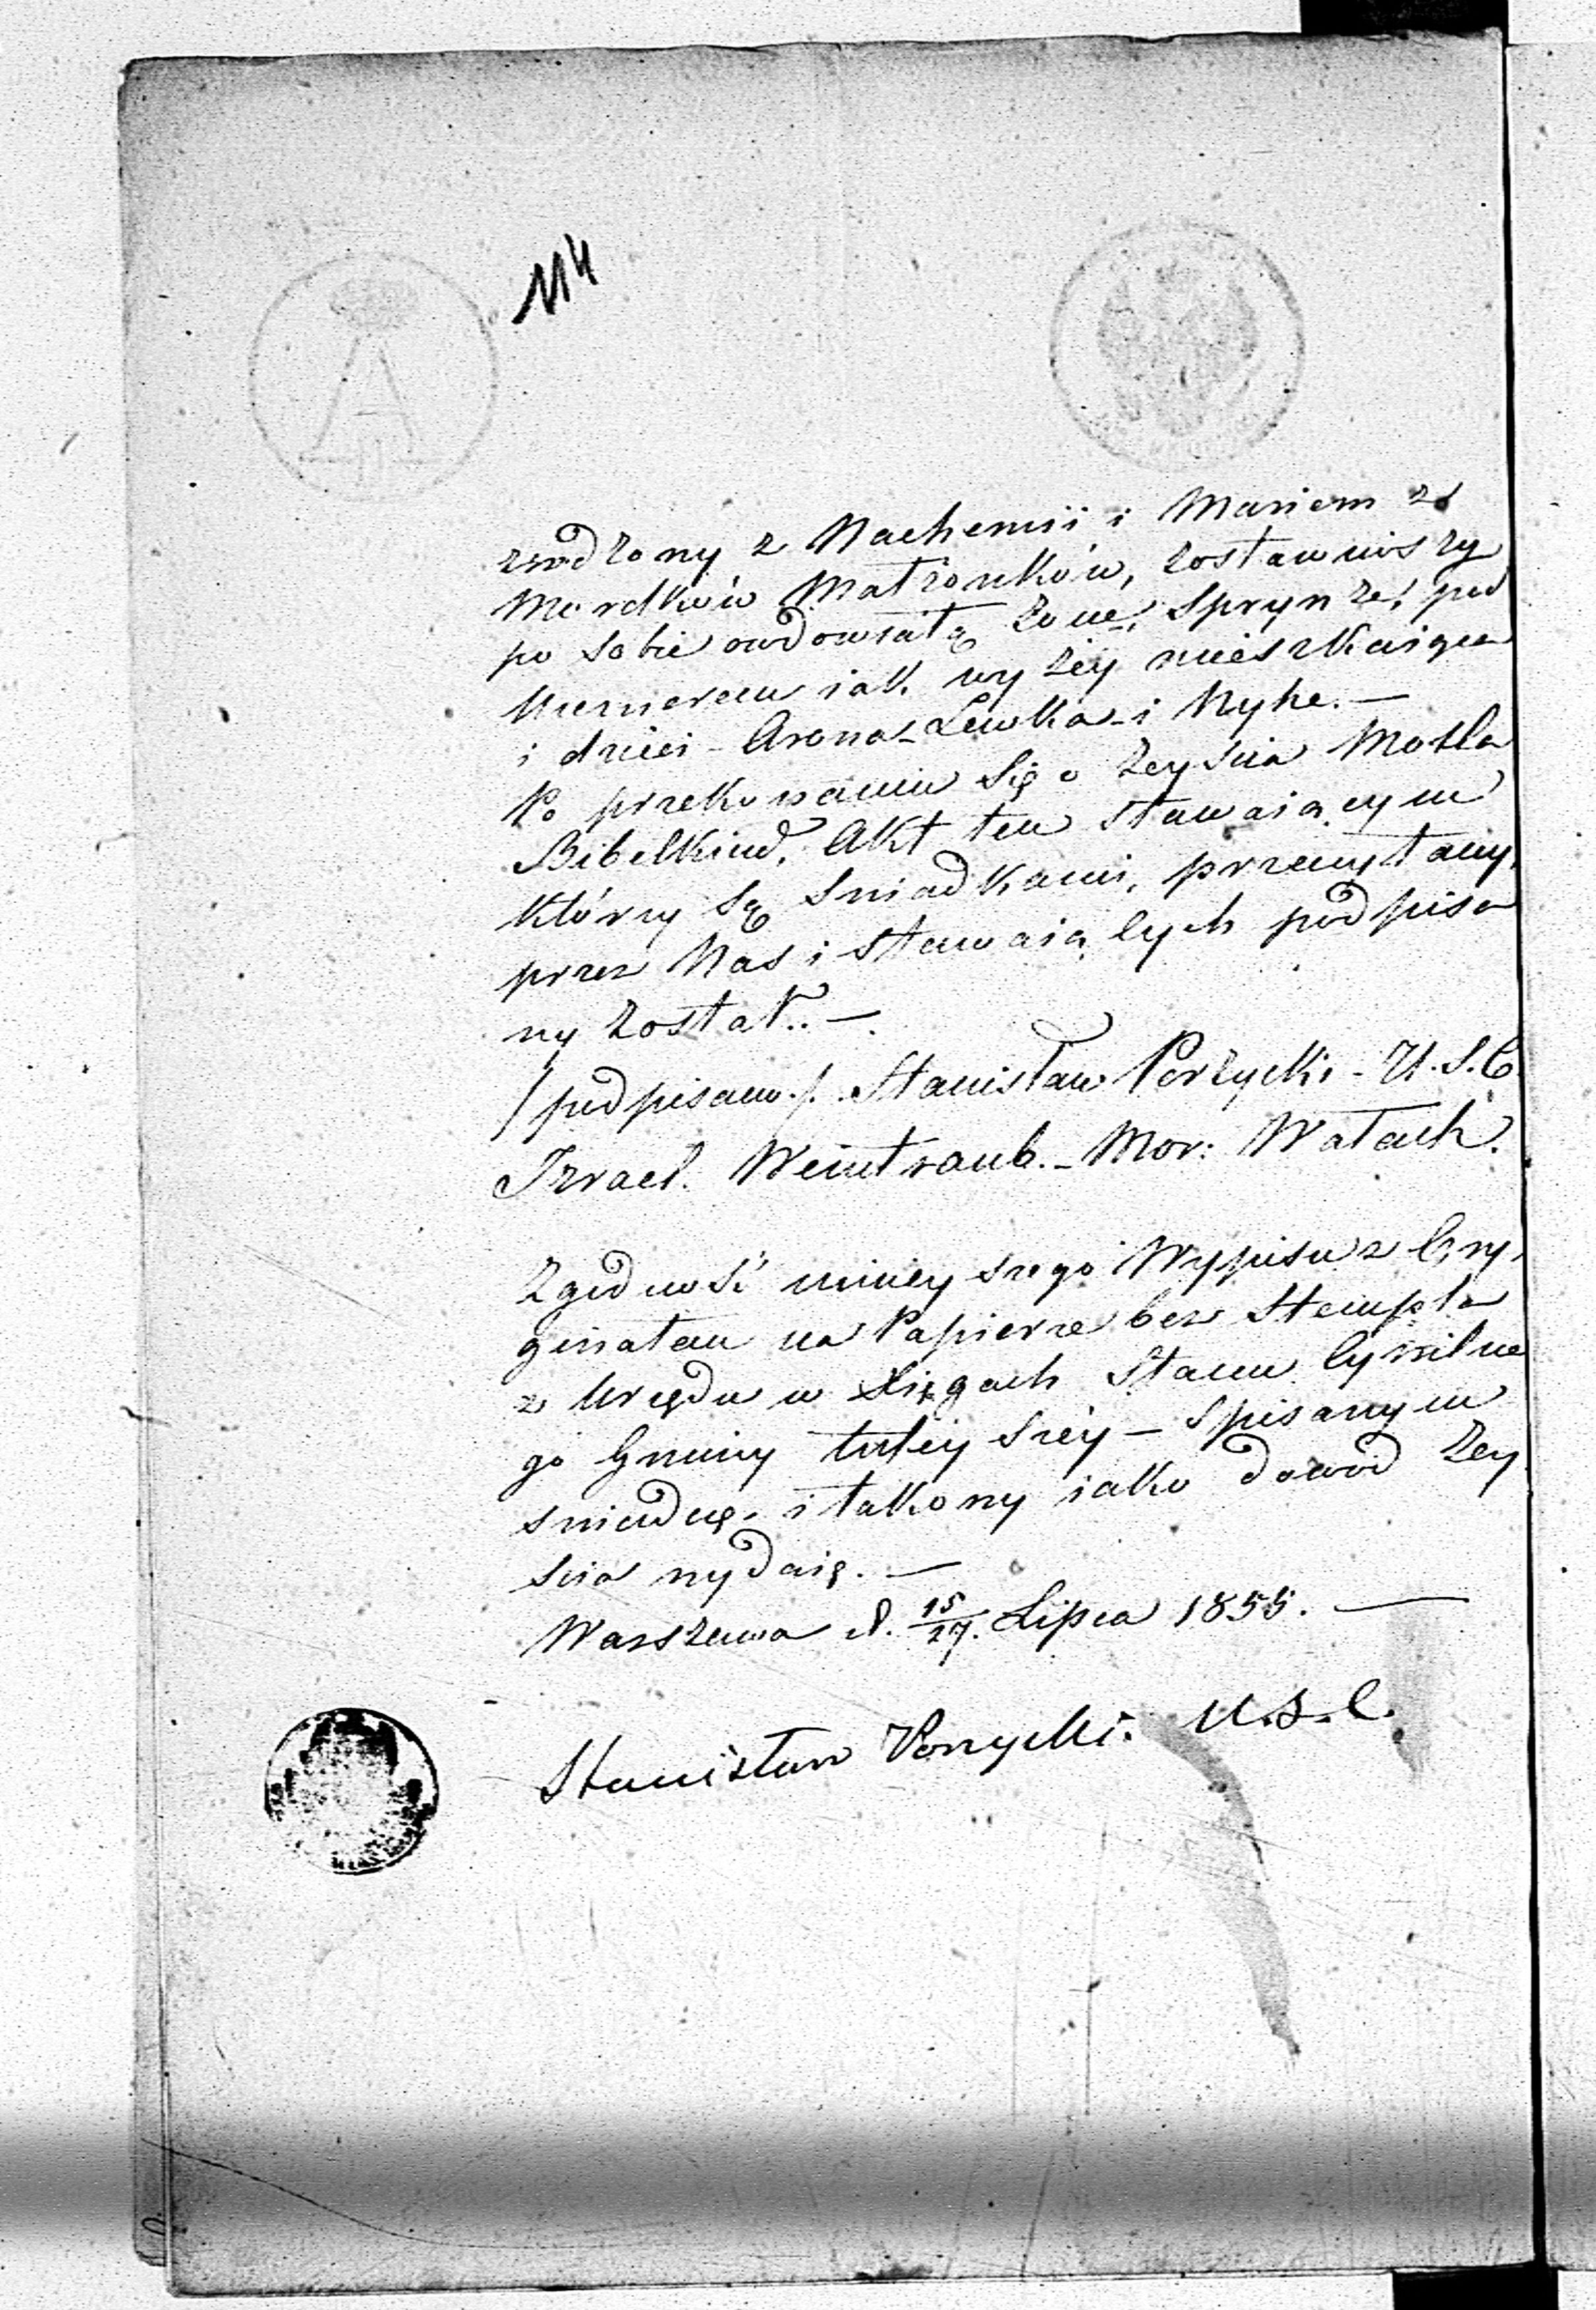 114
zrodzony z Nachemii i Mariem z
Mordków Małżonków, zostawiwszy
po sobie owdowiałą żonę, Sprynzę, pod
Numerem iak wyżéy mieszkaiącą
i dzieci - Arona - Lewka - i Nyhe. —
Po przekonaniu się o zeyściu Moska
Bibelkind, Akt ten stawaiącym
którzy są świadkami, przeczytany,
przez Nas i stawaiących podpisa
ny został. —
/podpisano/. Stanisław Porzycki - U. S. C.
Izrael. Weintraub. - Mor: Wałach.
Zgodność ninieyszego Wypisu z Ory,
ginałem na Papierze bez Stempla
z Urzędu w Xięgach Stanu Cywilne
go Gminy tuteyszéy — spisanym
świadczę, i takowy iako dowód zey
ścia wydaię. —
Warszawa d. 15/27. Lipca 1855. —
Stanisław Porzycki. U. S. C.